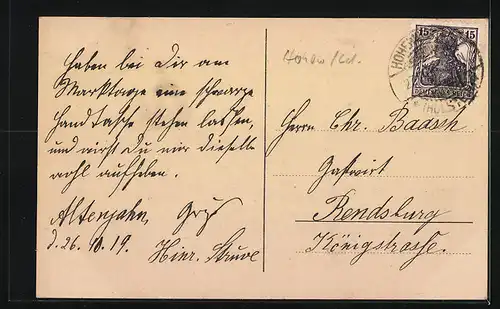 Haben bei Dir am
Markttage eine schwarze
Handtasche stehen lassen,
und wirst Du mir dieselbe
wohl aufheben.
Altenjahn,
d. 26.10.19. Hinr. Struve
15 15
Herrn Chr. Baasch
Gastwirt
Rendsburg
Königstrasse.